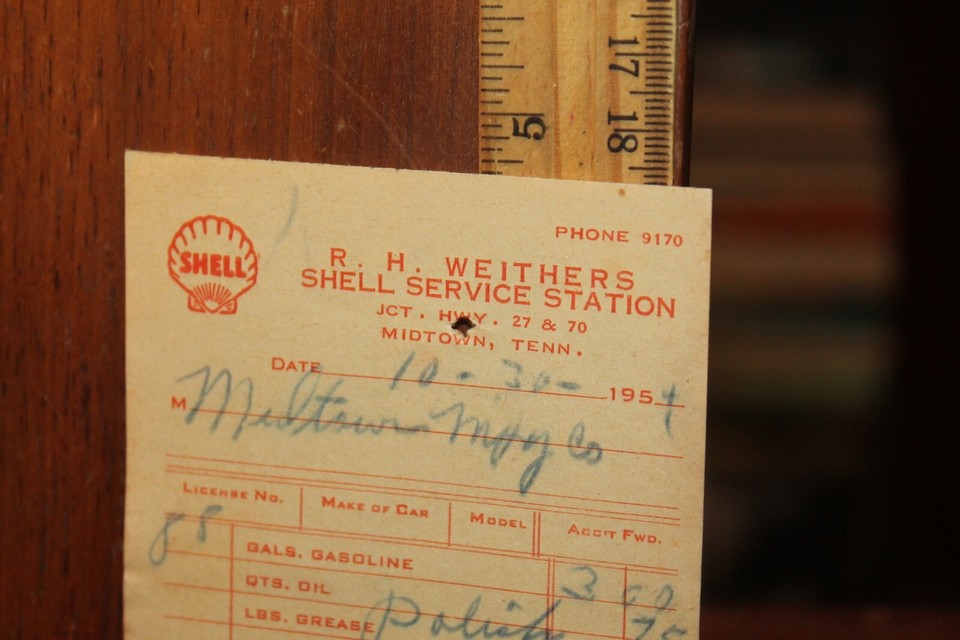 17
5 18
PHONE 9170
SHELL
R. H. WEITHERS
SHELL SERVICE STATION
JCT. HWY. 27 & 70
MIDTOWN, TENN.
DATE 10-30- 1954
M Midtown Mfg Co
LICENSE NO. MAKE OF CAR MODEL ACC'T FWD.
8.8 GALS. GASOLINE 3 00
QTS. OIL
LBS. GREASE Polish 75